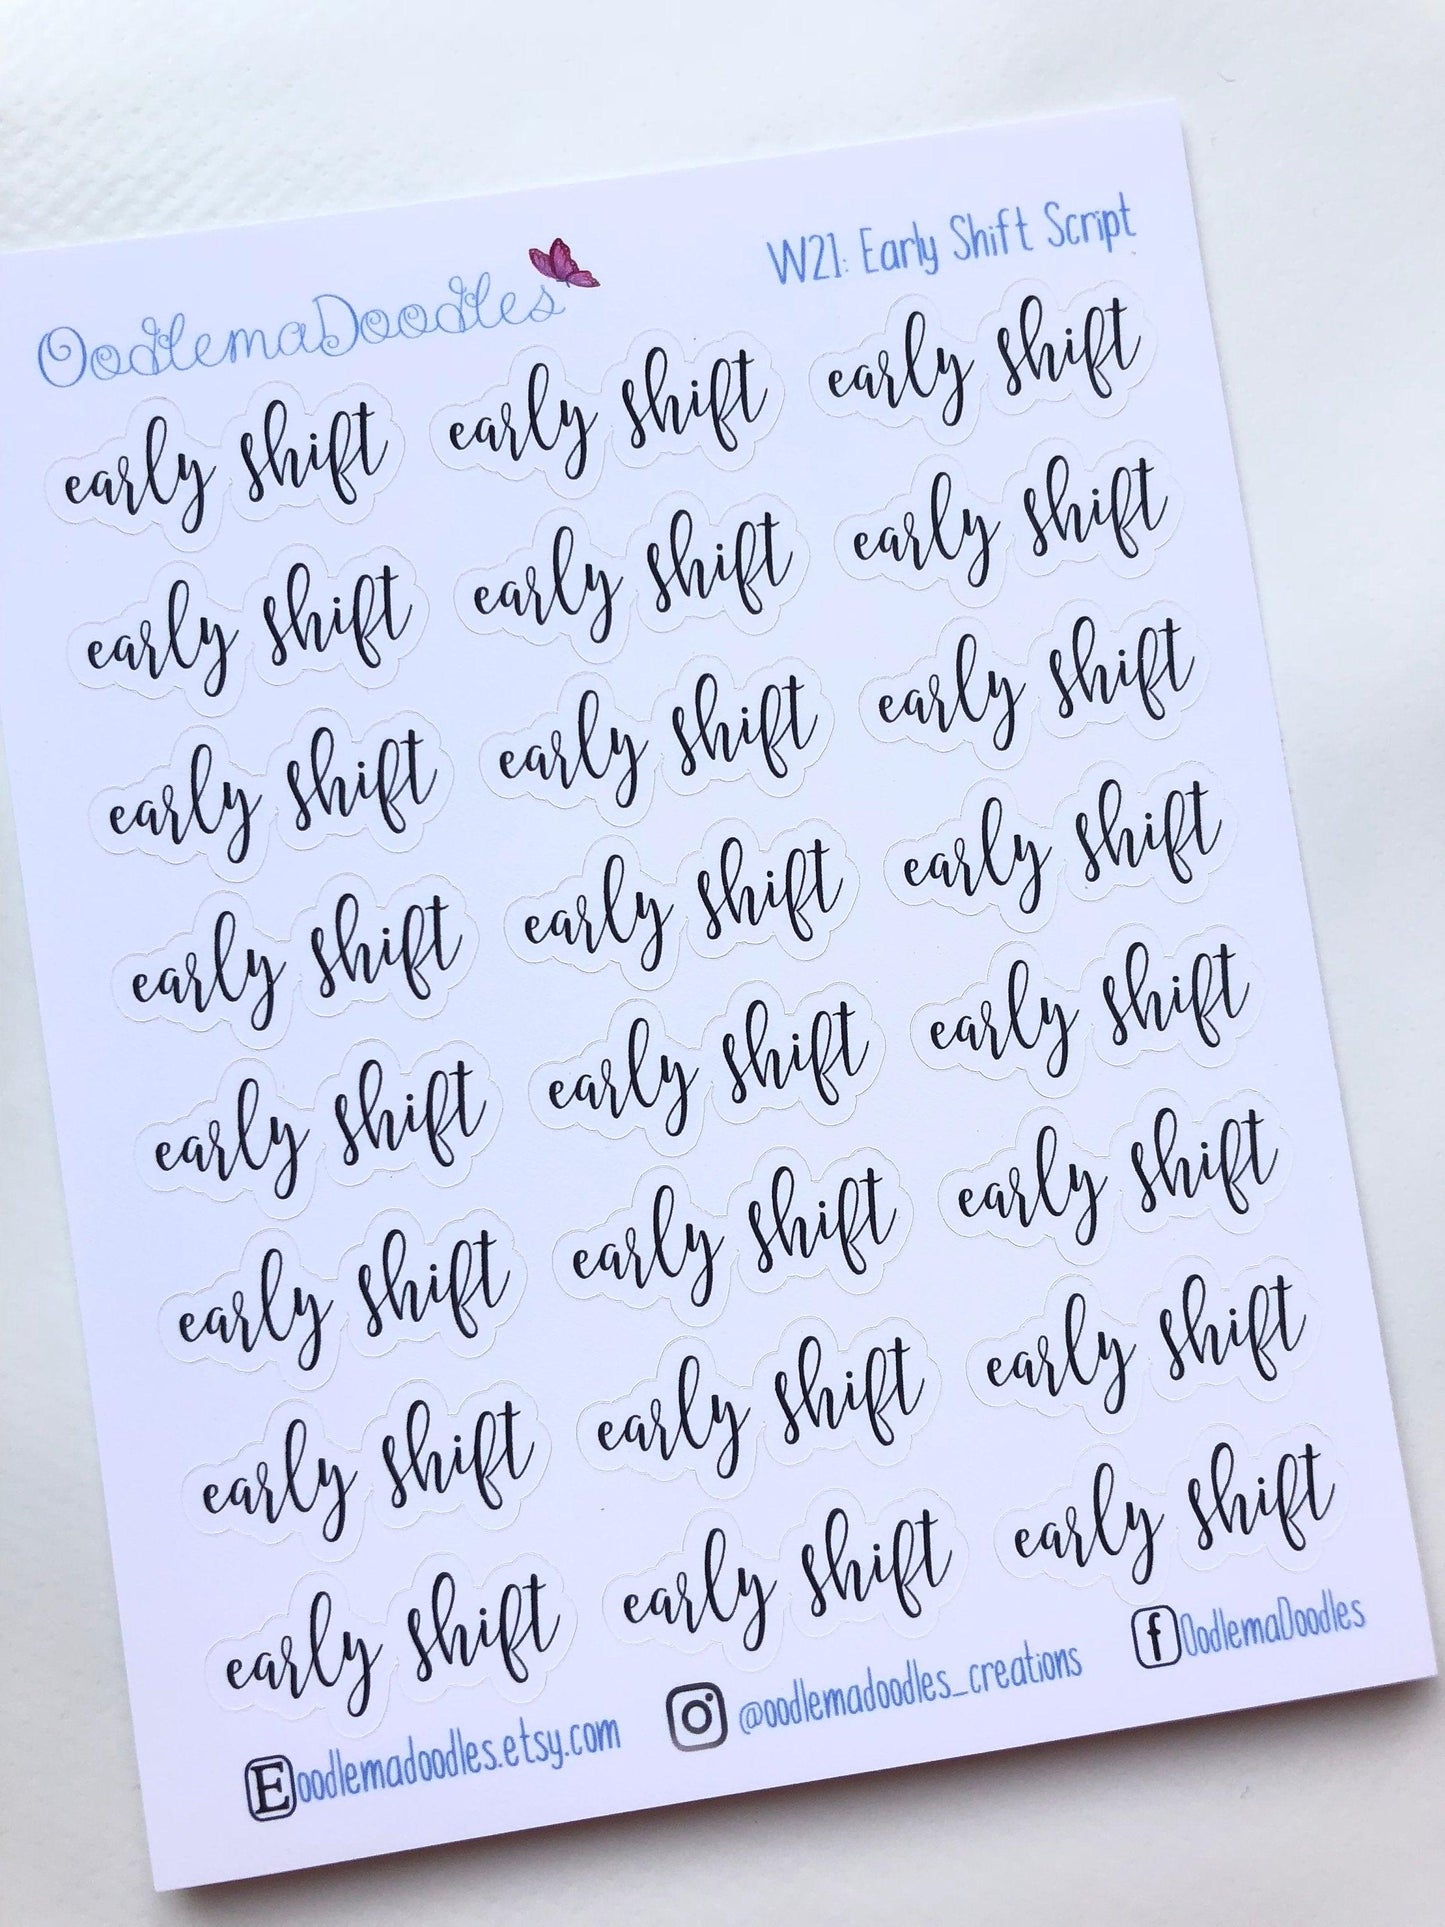 OodlemaDoodles W21: Early Shift Script
early shift early shift early shift
early shift early shift early shift
early shift early shift early shift
early shift early shift early shift
early shift early shift early shift
early shift early shift early shift
early shift early shift early shift
early shift early shift early shift
E oodlemadoodles.etsy.com @oodlemadoodles_creations f OodlemaDoodles